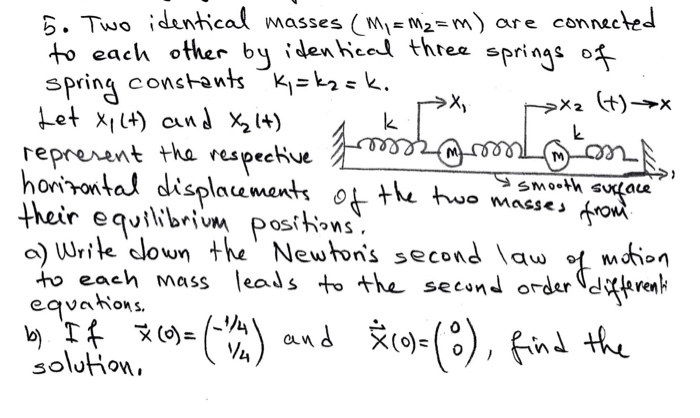 5. Two identical masses (m₁=m₂=m) are connected
to each other by identical three springs of
spring constants k₁=k₂=k.
Let x₁(t) and x₂(t)
represent the respective
horizontal displacements of the two masses from
their equilibrium positions.
k
→x₁
→x₂ (+)→x
k
m
m
→ smooth surface
a) Write down the Newton's second law of motion
to each mass leads to the second order differenti
equations.
b) If x⃗(0)=(-1/4 1/4) and ẋ⃗(0)=(0 0), find the
solution.